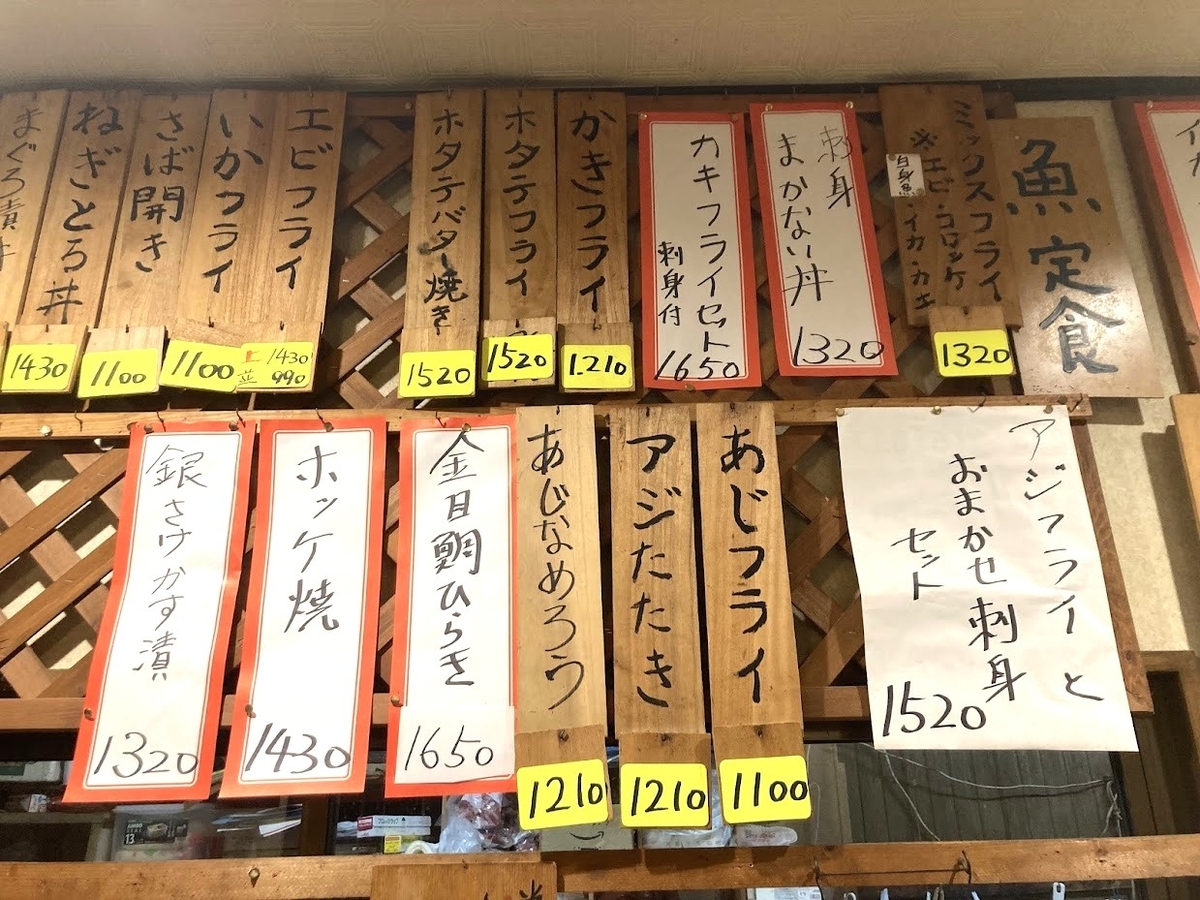 魚定食
ミックスフライ
※エビ・コロッケ
白身魚
イカ・カキ
1320
刺身
まかない丼
1320
カキフライセット
刺身付
1650
かきフライ
1.210
ホタテフライ
1520
ホタテバター焼き
1520
エビフライ
上 1430
並 990
いかフライ
1100
さば開き
1100
ねぎとろ丼
1430
まぐろ漬丼
アジフライと
おまかせ刺身
セット
1520
あじフライ
1100
アジたたき
1210
あじなめろう
1210
金目鯛ひらき
1650
ホッケ焼
1430
銀さけかす漬
1320